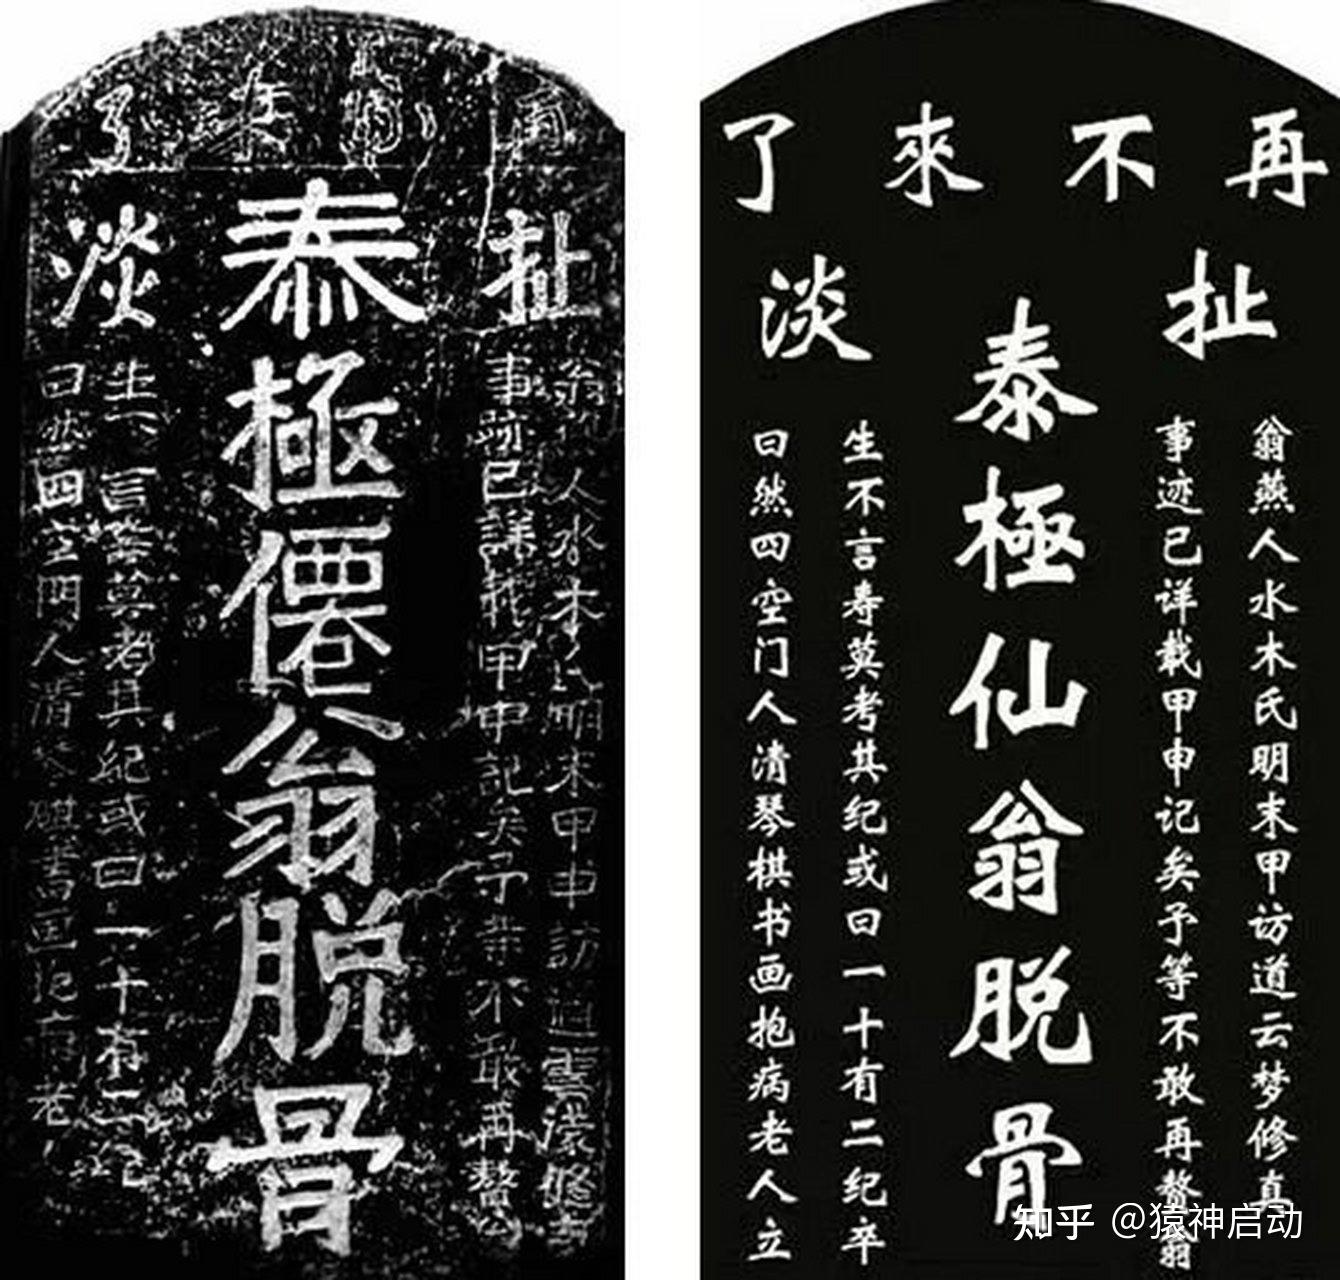 來了
扯淡
泰極僊翁脫骨
翁人水木明末甲申訪道雲濛修真
事跡已詳載甲申記矣予等不敢再贅
生不言壽莫考其紀或曰一十有二紀
曰然四空門人清琴棋書画抱病老人
再不來了
扯淡
泰極仙翁脱骨
翁燕人水木氏明末甲访道云梦修真
事迹已详载甲申记矣予等不敢再赘翁
生不言寿莫考其纪或曰一十有二纪卒
曰然四空门人清琴棋书画抱病老人立
知乎 @猿神启动